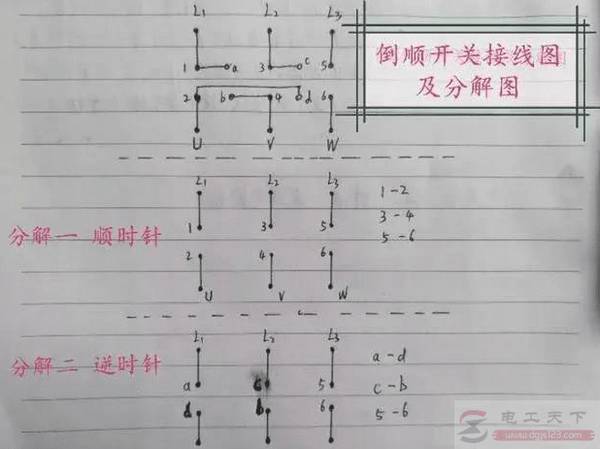 倒顺开关接线图
及分解图
L1 L2 L3
1 a 3 c 5
2 b 4 d 6
U V W
L1 L2 L3
1-2
3-4
5-6
1 3 5
分解一 顺时针
2 4 6
U V W
L1 L2 L3
分解二 逆时针
a-d
c-b
5-6
a c 5
d b 6
电工天下
www.dgjs123.com